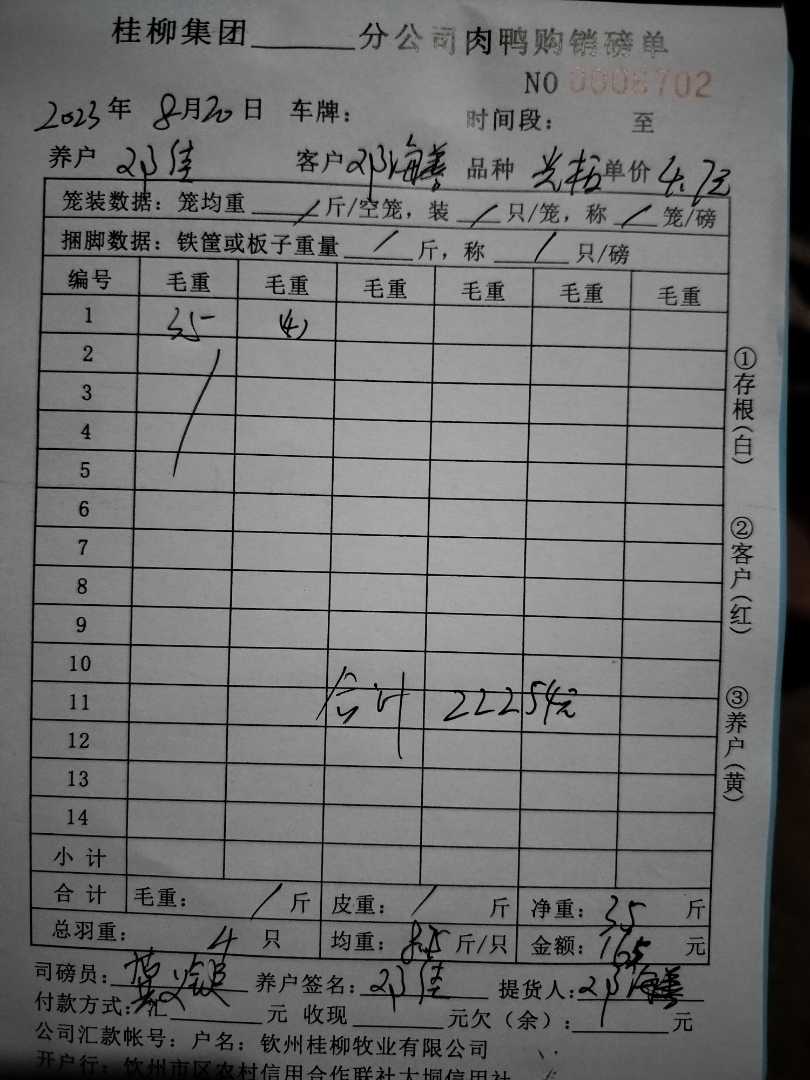 桂柳集团______分公司肉鸭购销磅单
NO 0008702
2023年 8月20日 车牌: 时间段: 至
养户 邓佳 客户 邓海善 品种 光板 单价 4.7元
笼装数据: 笼均重 / 斤/空笼, 装 / 只/笼, 称 / 笼/磅
捆脚数据: 铁筐或板子重量 / 斤, 称 / 只/磅
编号 毛重 毛重 毛重 毛重 毛重 毛重
1 35 (4)
2
3
4
5
6
7
8
9
10
11 合计 22254元
12
13
14
小计
合计 毛重: / 斤 皮重: / 斤 净重: 35 斤
总羽重: 4 只 均重: 斤/只 金额: 165 元
司磅员: 养户签名: 邓佳 提货人: 邓海善
付款方式: 汇______元 收现______元欠(余): 元
公司汇款帐号: 户名: 钦州桂柳牧业有限公司
开户行: 钦州市区农村信用合作联社大垌信用社
①存根(白)
②客户(红)
③养户(黄)